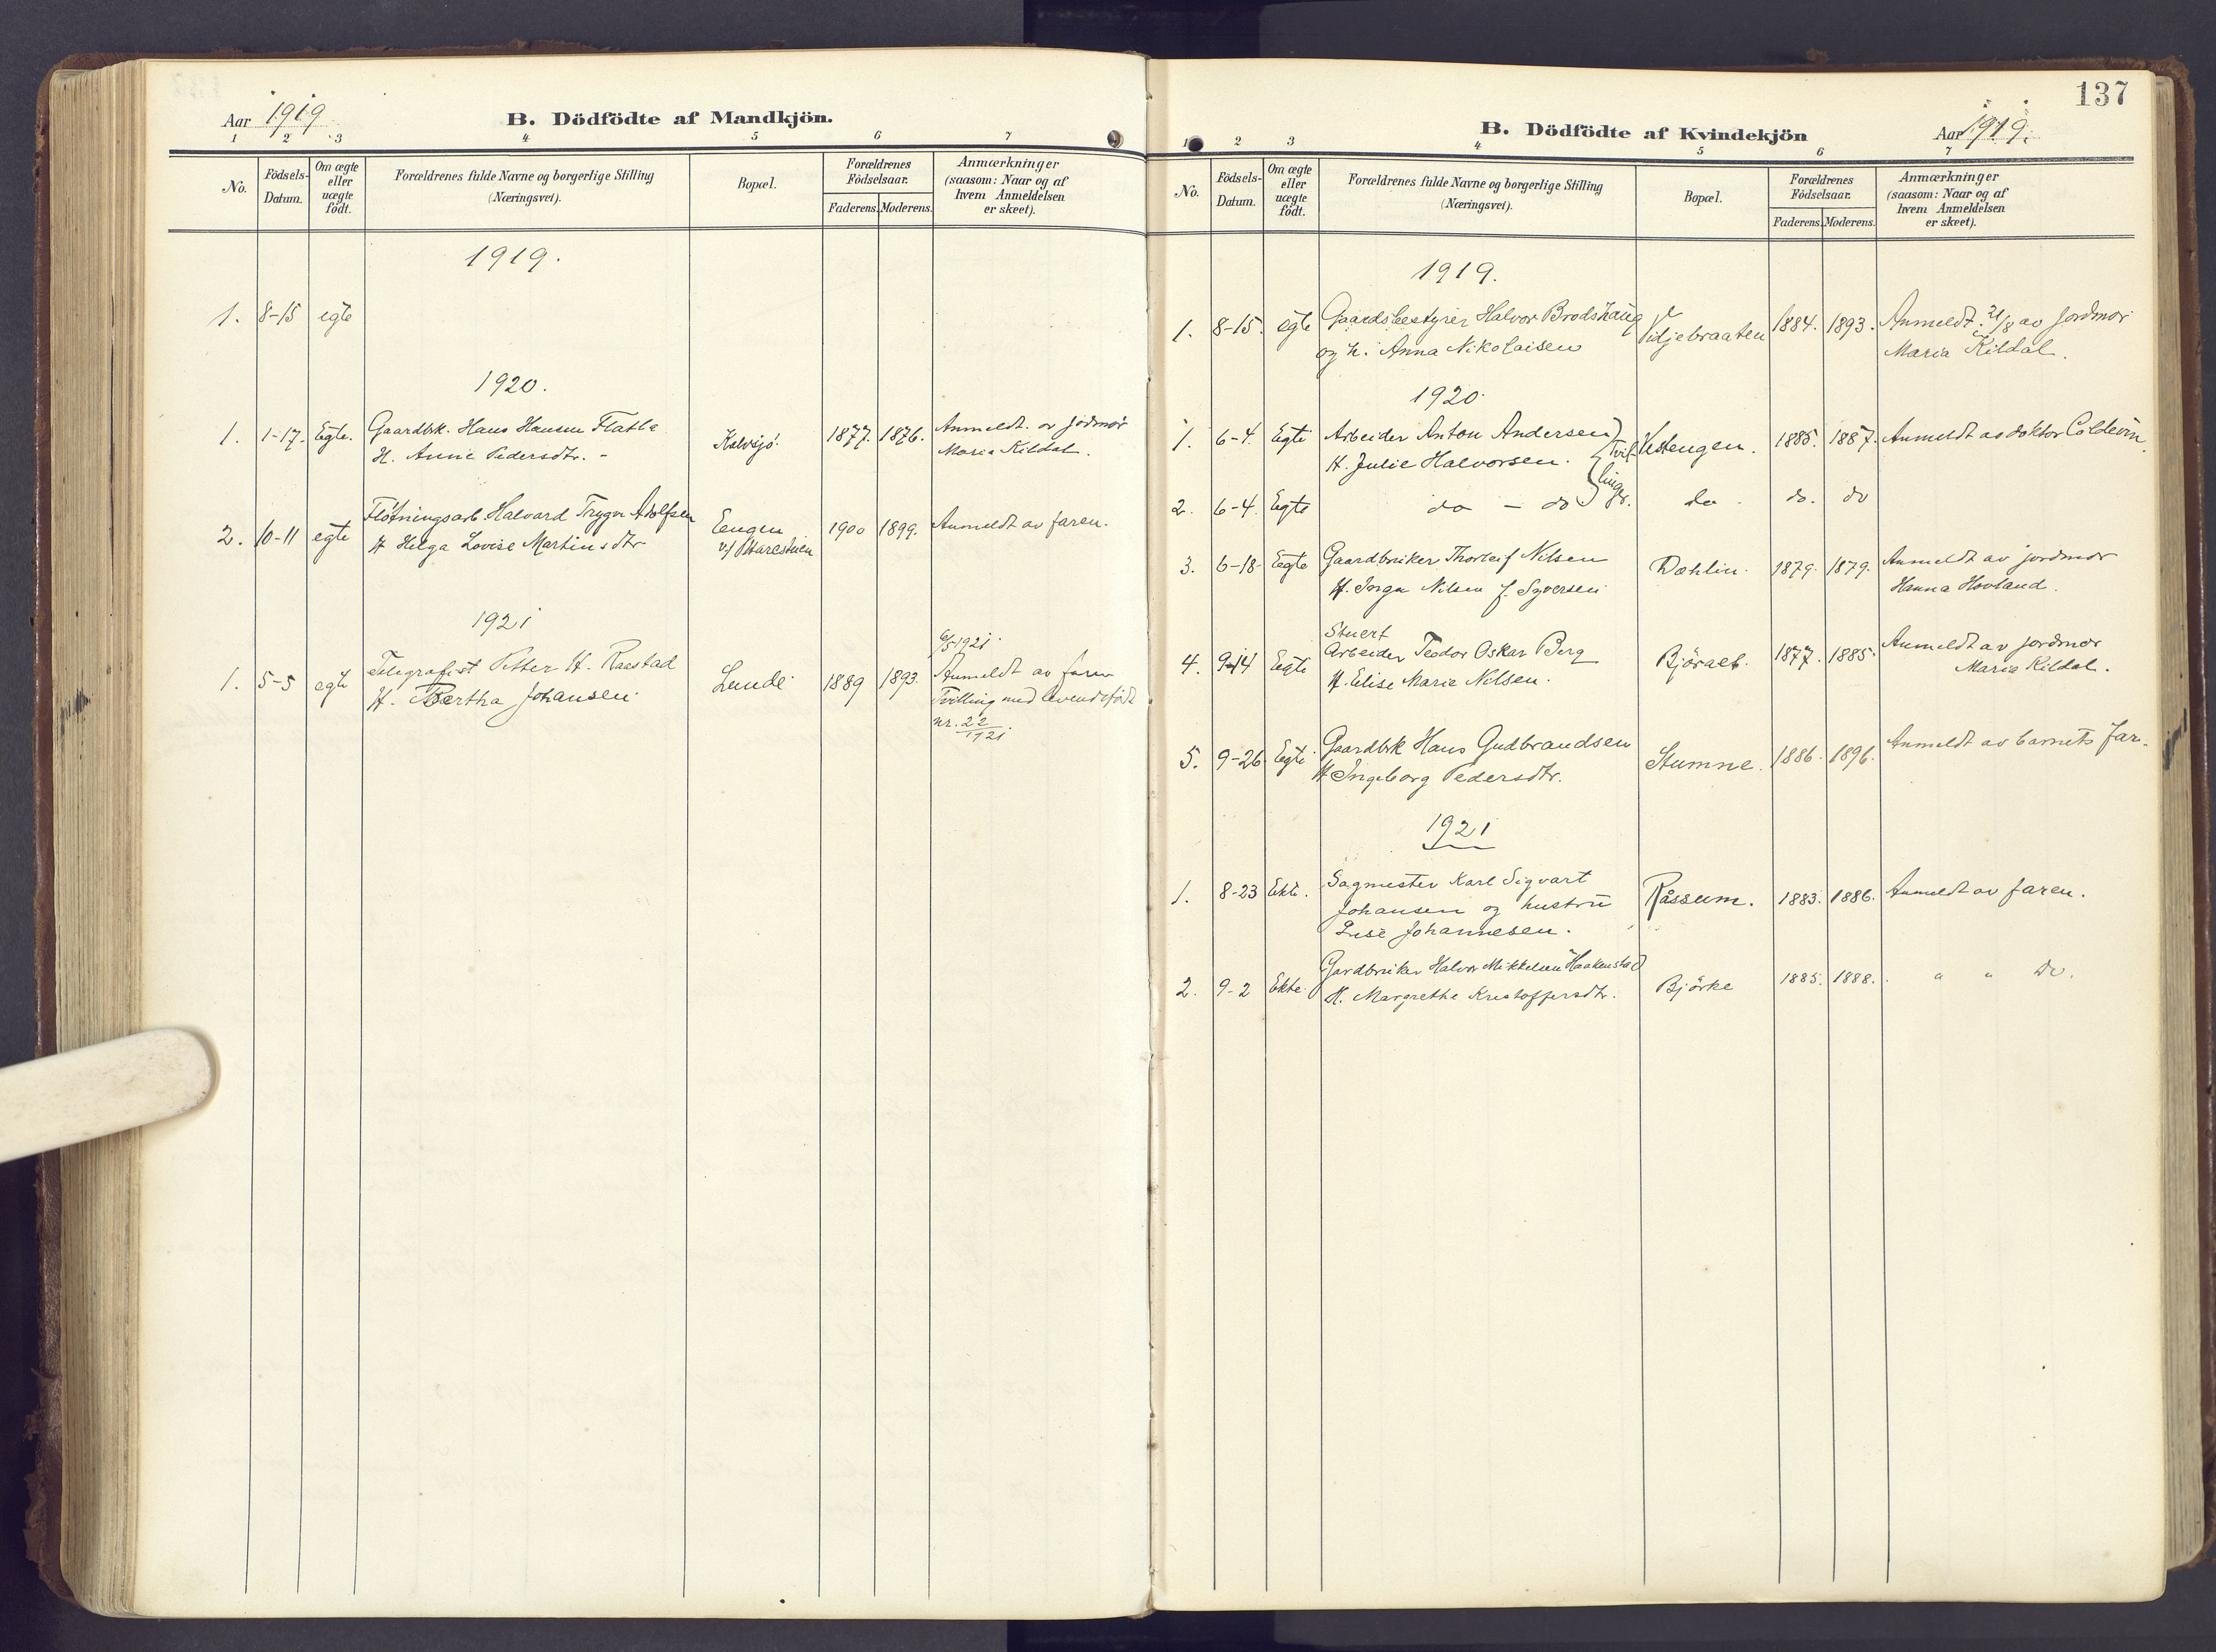 Aar 1919
B. Dödfödte af Mandkjön.
1 2 3 4 5 6 7
No.
Födsels-Datum.
Om ægte eller uægte födt.
Forældrenes fulde Navne og borgerlige Stilling (Næringsvei).
Bopæl.
Forældrenes Födselsaar.
Faderens. Moderens.
Anmærkninger (saasom: Naar og af hvem Anmeldelsen er skeet).
1919.
1. 8-15 egte
1920.
1. 1-17. Egte. Gaardbrk. Hans Hansen Flatla Kalvsjø. 1877. 1876. Anmeldt. av jordmor
H. Anne Pedersdtr. - Maria Kildal.
2. 10-11 egte Fløtningsarb. Halvard Trygve Adolfsen Eengen 1900 1899. Anmeldt av faren.
H Helga Lovise Martinsdtr v/
1921
6/5 1921.
1. 5-5 egte Telegrafist Petter H. Raastad Lunde 1889 1893. Anmeldt av faren
H. Bertha Johansen Tvilling med levendefødt
nr. 22
1921
137
B. Dödfödte af Kvindekjön
Aar 1919.
1 2 3 4 5 6 7
No.
Födsels-Datum.
Om ægte eller uægte födt.
Forældrenes fulde Navne og borgerlige Stilling (Næringsvei).
Bopæl.
Forældrenes Födselsaar.
Faderens. Moderens.
Anmærkninger (saasom: Naar og af hvem Anmeldelsen er skeet).
1919.
1. 8-15. egte Gaardsbestyrer Halvor Brodshaug Vidjebraaten 1884. 1893. Anmeldt 21/8 av jordmor
og h. Anna Nikolaisen Maria Kildal.
1920.
1. 6-4. Egte Arbeider Anton Andersen Vestengen. 1885. 1887. Anmeldt av doktor Coldevin.
H. Julie Halvorsen. Tvillinger.
2. 6-4. Egte do - do do do. do
3. 6-18 Egte Gaardbruker Thorleif Nilsen Dæhlin. 1879. 1879. Anmeldt av jordmor
H. Inga Nilsen f. Syversen Hanna Hovland.
Stuert
4. 9-14 Egte Arbeider Teodor Oskar Berg 1877. 1885. Anmeldt av jordmor
H. Elise Marie Nilsen. Maria Kildal.
5. 9-26 Egte. Gaardbrk Hans Gudbrandsen Stumne. 1886. 1896. Anmeldt av barnets far.
H Ingeborg Pedersdtr.
1921
1. 8-23 Ekte. Sagmester Karl Sigvart Råssum. 1883. 1886. Anmeldt av faren.
Johansen og hustru
Lise Johannesen.
2. 9-2 Ekte Gardbruker Halvor Mikkelsen Haakenstad Björke 1885. 1888. " " Do.
H. Margrethe Kristoffersdtr.